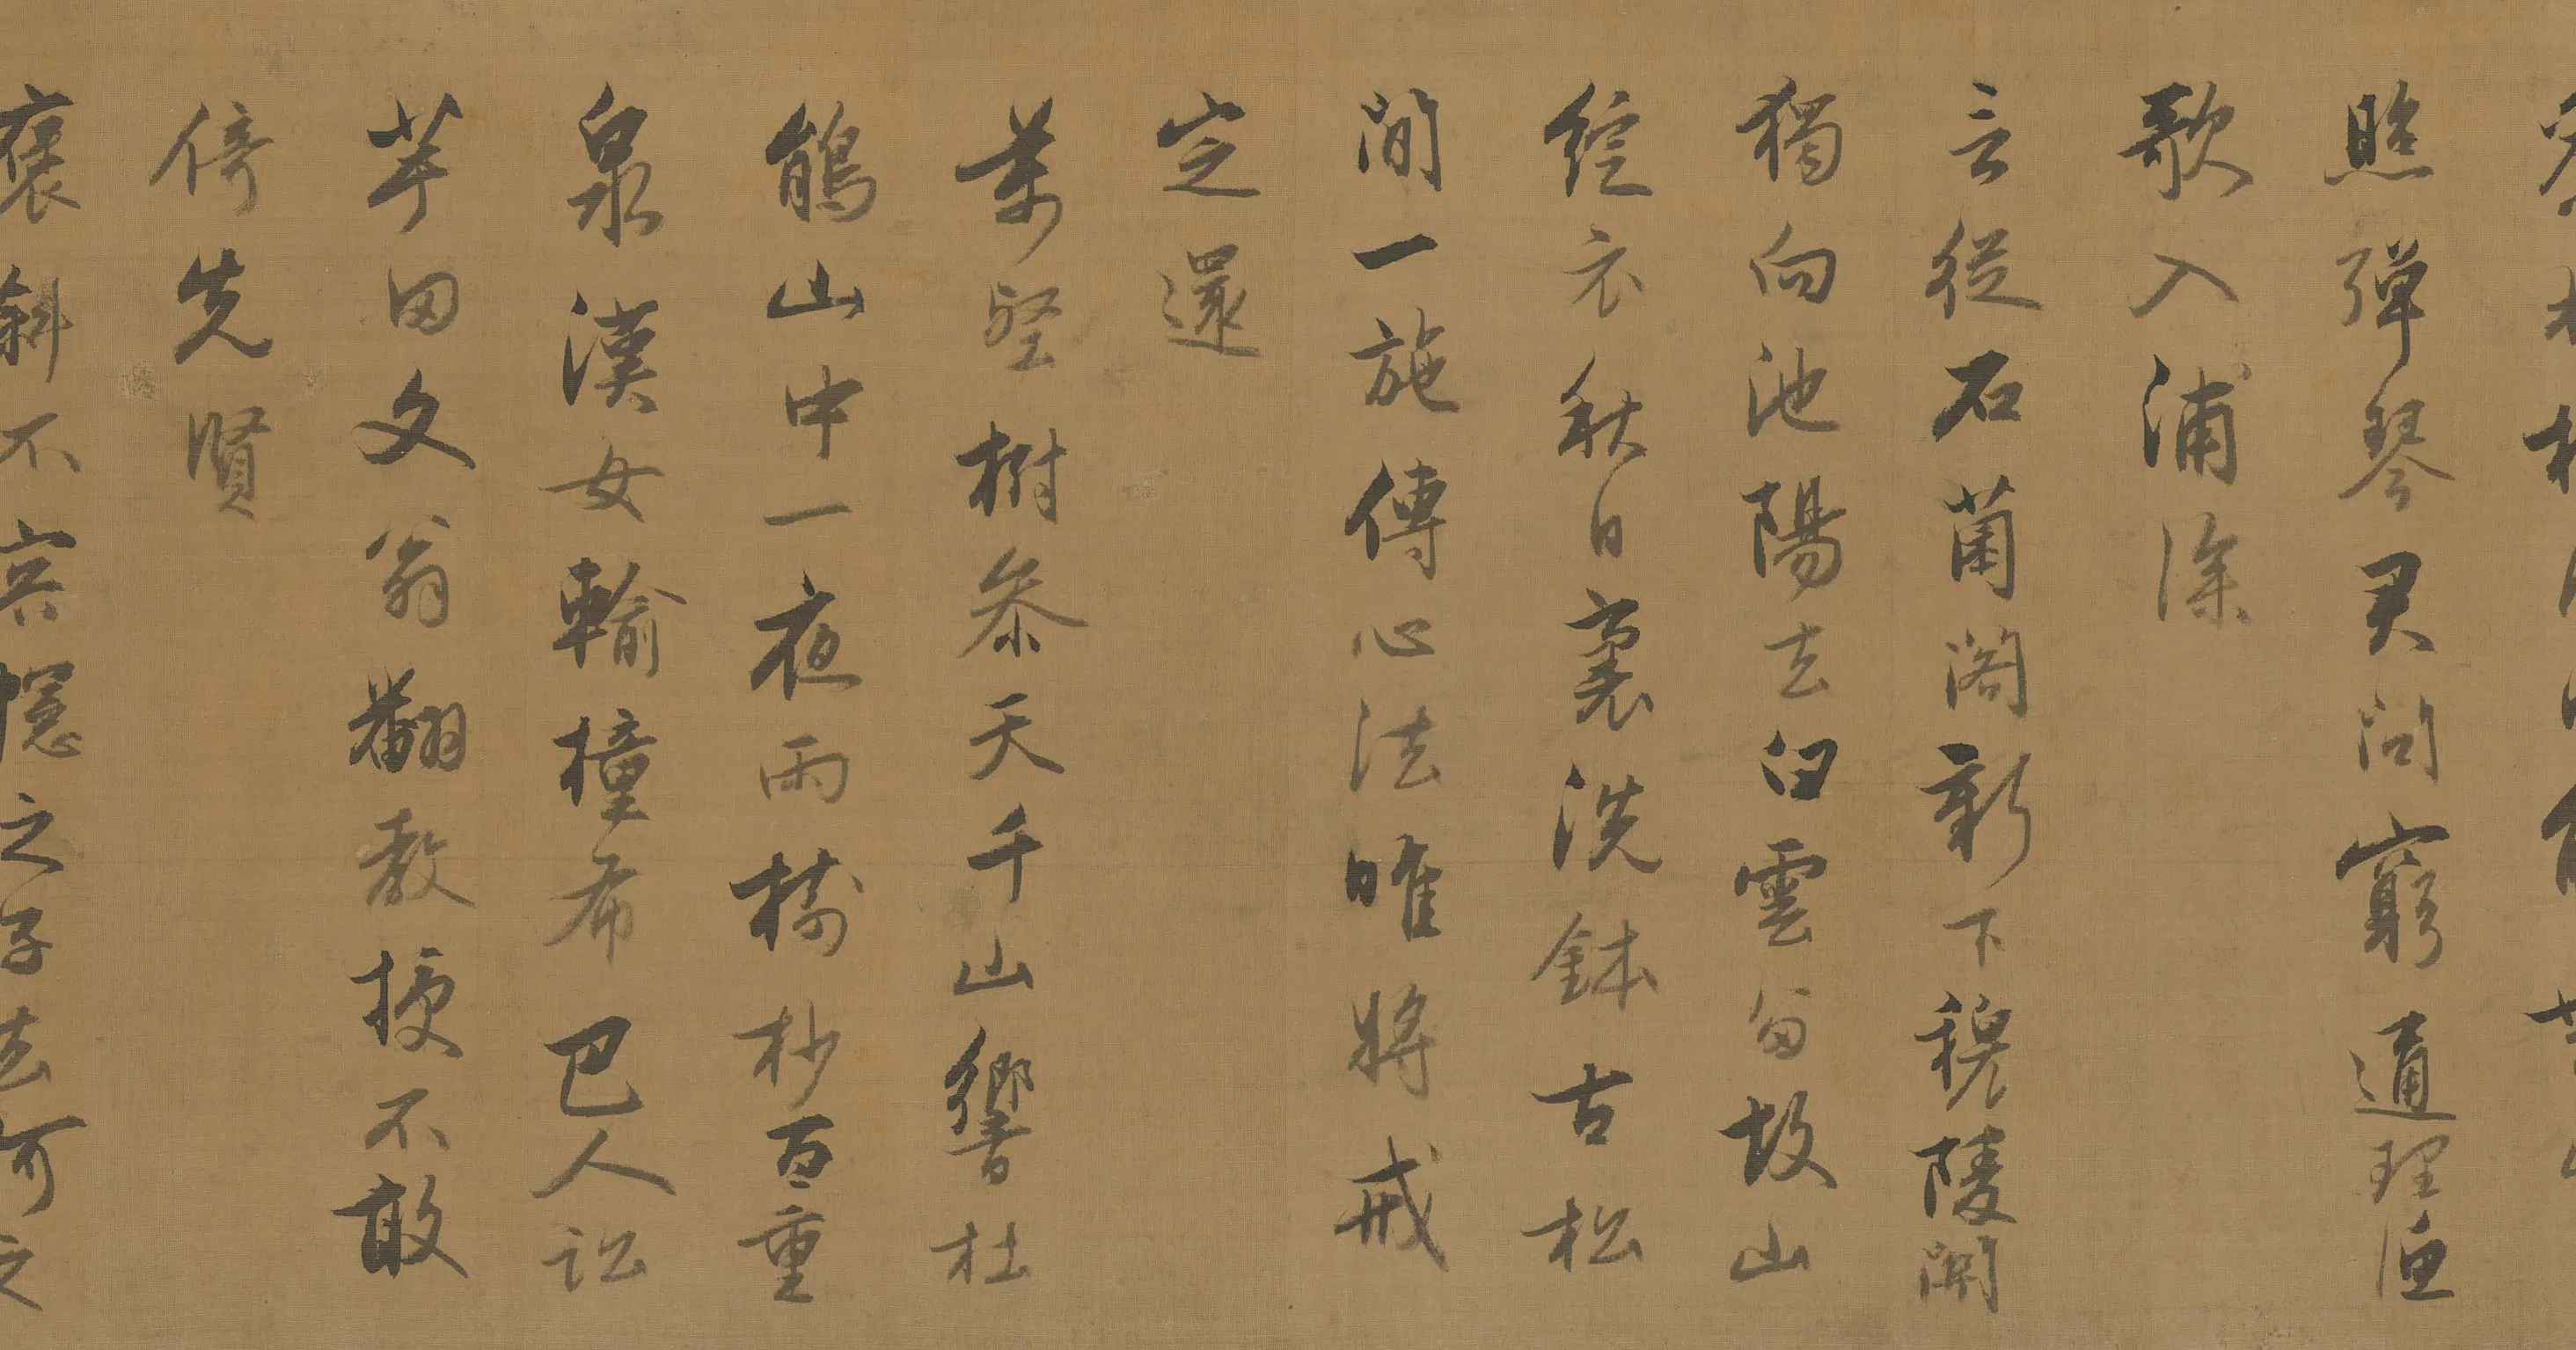 照彈琴君問窮通理漁
歌入浦深
言從石菌閣新下穆陵關
獨向池陽去白雲留故山
綻衣秋日裏洗鉢古松
間一施傳心法唯將戒
定還
萬壑樹參天千山響杜
鵑山中一夜雨樹杪百重
泉漢女輸橦布巴人訟
芋田文翁翻教授不敢
倚先賢
褒斜不容幰之子去何之